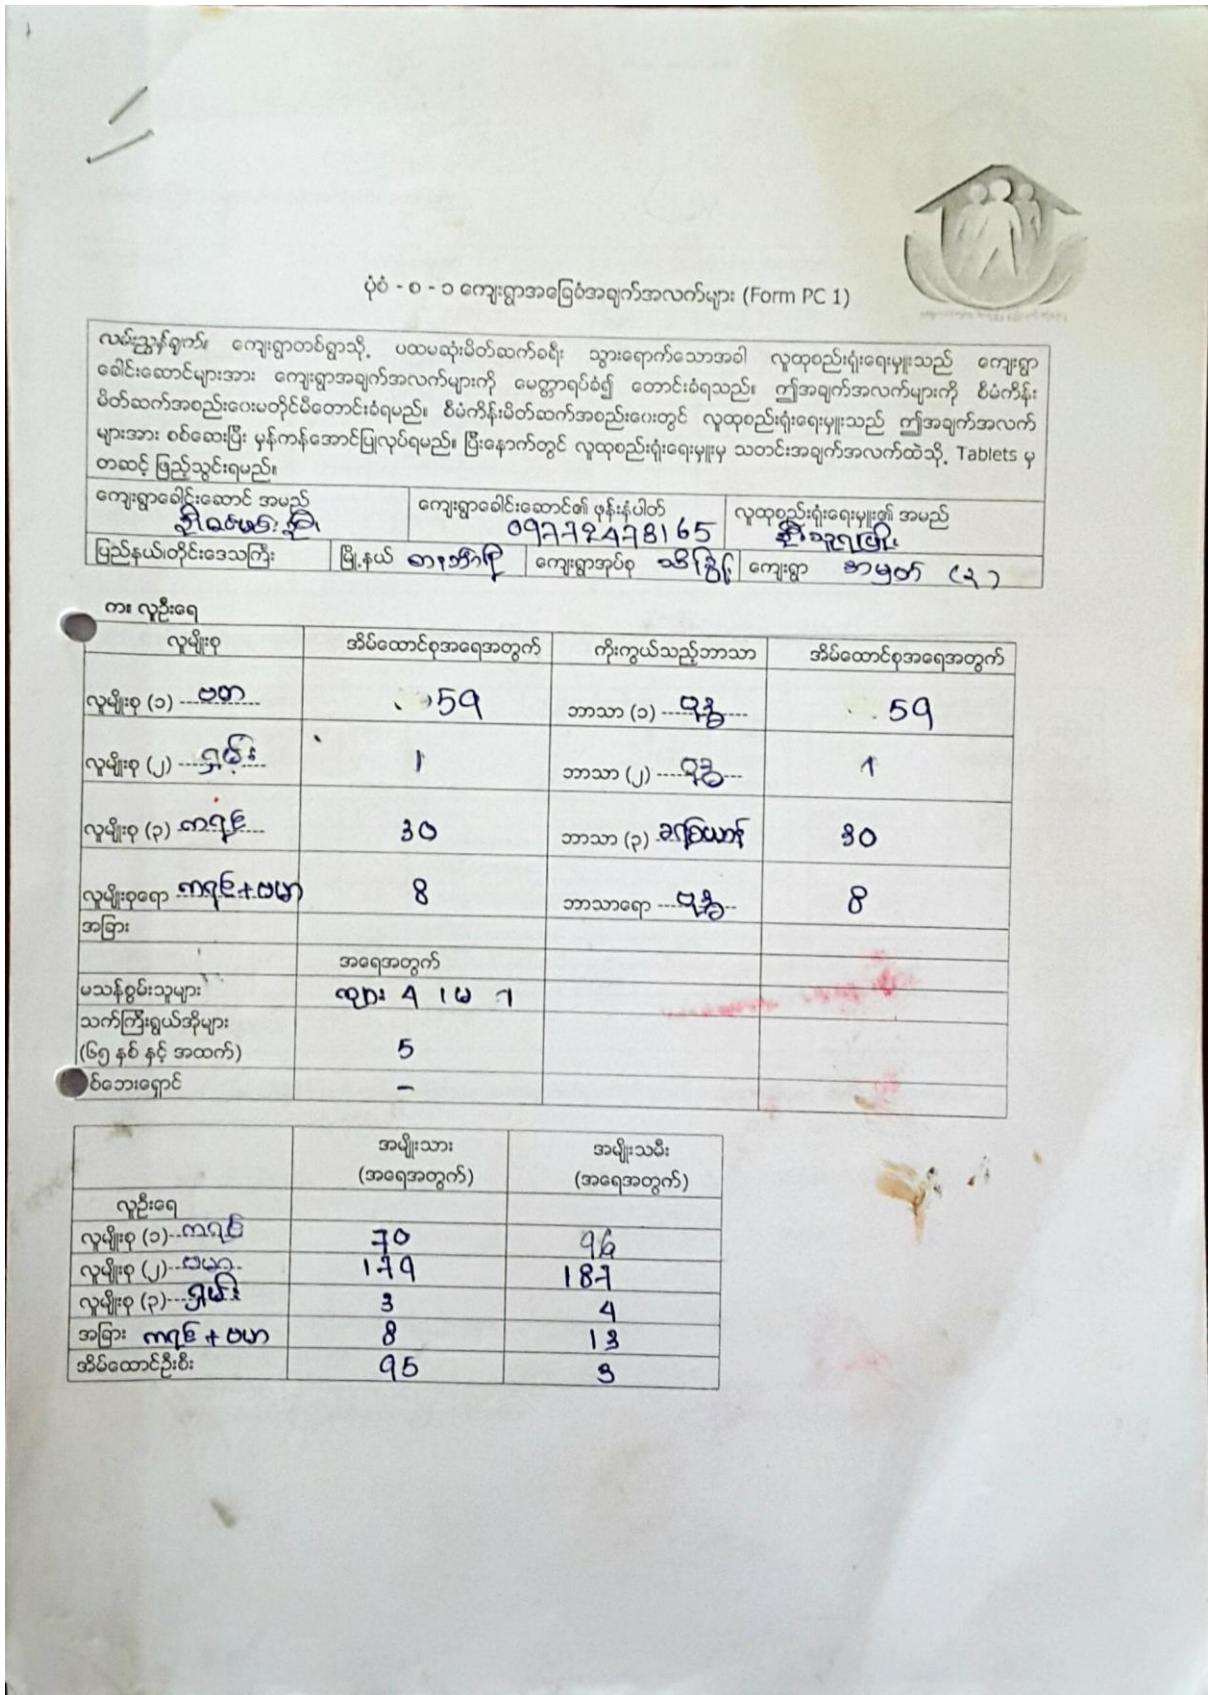 ပုံစံ - စ - ၁ ကျေးရွာအခြေခံအချက်အလက်များ (Form PC 1)
လမ်းညွှန်ချက်။ ကျေးရွာတစ်ရွာသို့ ပထမဆုံးမိတ်ဆက်ခရီး သွားရောက်သောအခါ လူထုစည်းရုံးရေးမှူးသည် ကျေးရွာ
ခေါင်းဆောင်များအား ကျေးရွာအချက်အလက်များကို မေတ္တာရပ်ခံ၍ တောင်းခံရသည်။ ဤအချက်အလက်များကို စီမံကိန်း
မိတ်ဆက်အစည်းဝေးမတိုင်မီတောင်းခံရမည်။ စီမံကိန်းမိတ်ဆက်အစည်းဝေးတွင် လူထုစည်းရုံးရေးမှူးသည် ဤအချက်အလက်
များအား စစ်ဆေးပြီး မှန်ကန်အောင်ပြုလုပ်ရမည်။ ပြီးနောက်တွင် လူထုစည်းရုံးရေးမှူးမှ သတင်းအချက်အလက်ထဲသို့ Tablets မှ
တဆင့် ဖြည့်သွင်းရမည်။
ကျေးရွာခေါင်းဆောင် အမည် ကျေးရွာခေါင်းဆောင်၏ ဖုန်းနံပါတ် လူထုစည်းရုံးရေးမှူး၏ အမည်
09772478165
ပြည်နယ်/တိုင်းဒေသကြီး မြို့နယ် ကျေးရွာအုပ်စု ကျေးရွာ စာမှတ် (၃)
က။ လူဦးရေ
လူမျိုးစု အိမ်ထောင်စုအရေအတွက် ကိုးကွယ်သည့်ဘာသာ အိမ်ထောင်စုအရေအတွက်
လူမျိုးစု (၁) ဗမာ 59 ဘာသာ (၁) ဗုဒ္ဓ 59
လူမျိုးစု (၂) ရှမ်း 1 ဘာသာ (၂) ဗုဒ္ဓ 1
လူမျိုးစု (၃) ကရင် 30 ဘာသာ (၃) ခရစ်ယာန် 30
လူမျိုးစုရော ကရင်+ဗမာ 8 ဘာသာရော ဗုဒ္ဓ 8
အခြား
အရေအတွက်
မသန်စွမ်းသူများ ကျား 4 ၊ မ 7
သက်ကြီးရွယ်အိုများ
(၆၅ နှစ် နှင့် အထက်) 5
စ်ဘေးရှောင် -
အမျိုးသား အမျိုးသမီး
(အရေအတွက်) (အရေအတွက်)
လူဦးရေ
လူမျိုးစု (၁) ကရင် 70 96
လူမျိုးစု (၂) ဗမာ 179 187
လူမျိုးစု (၃) ရှမ်း 3 4
အခြား ကရင် + ဗမာ 8 13
အိမ်ထောင်ဦးစီး 95 3